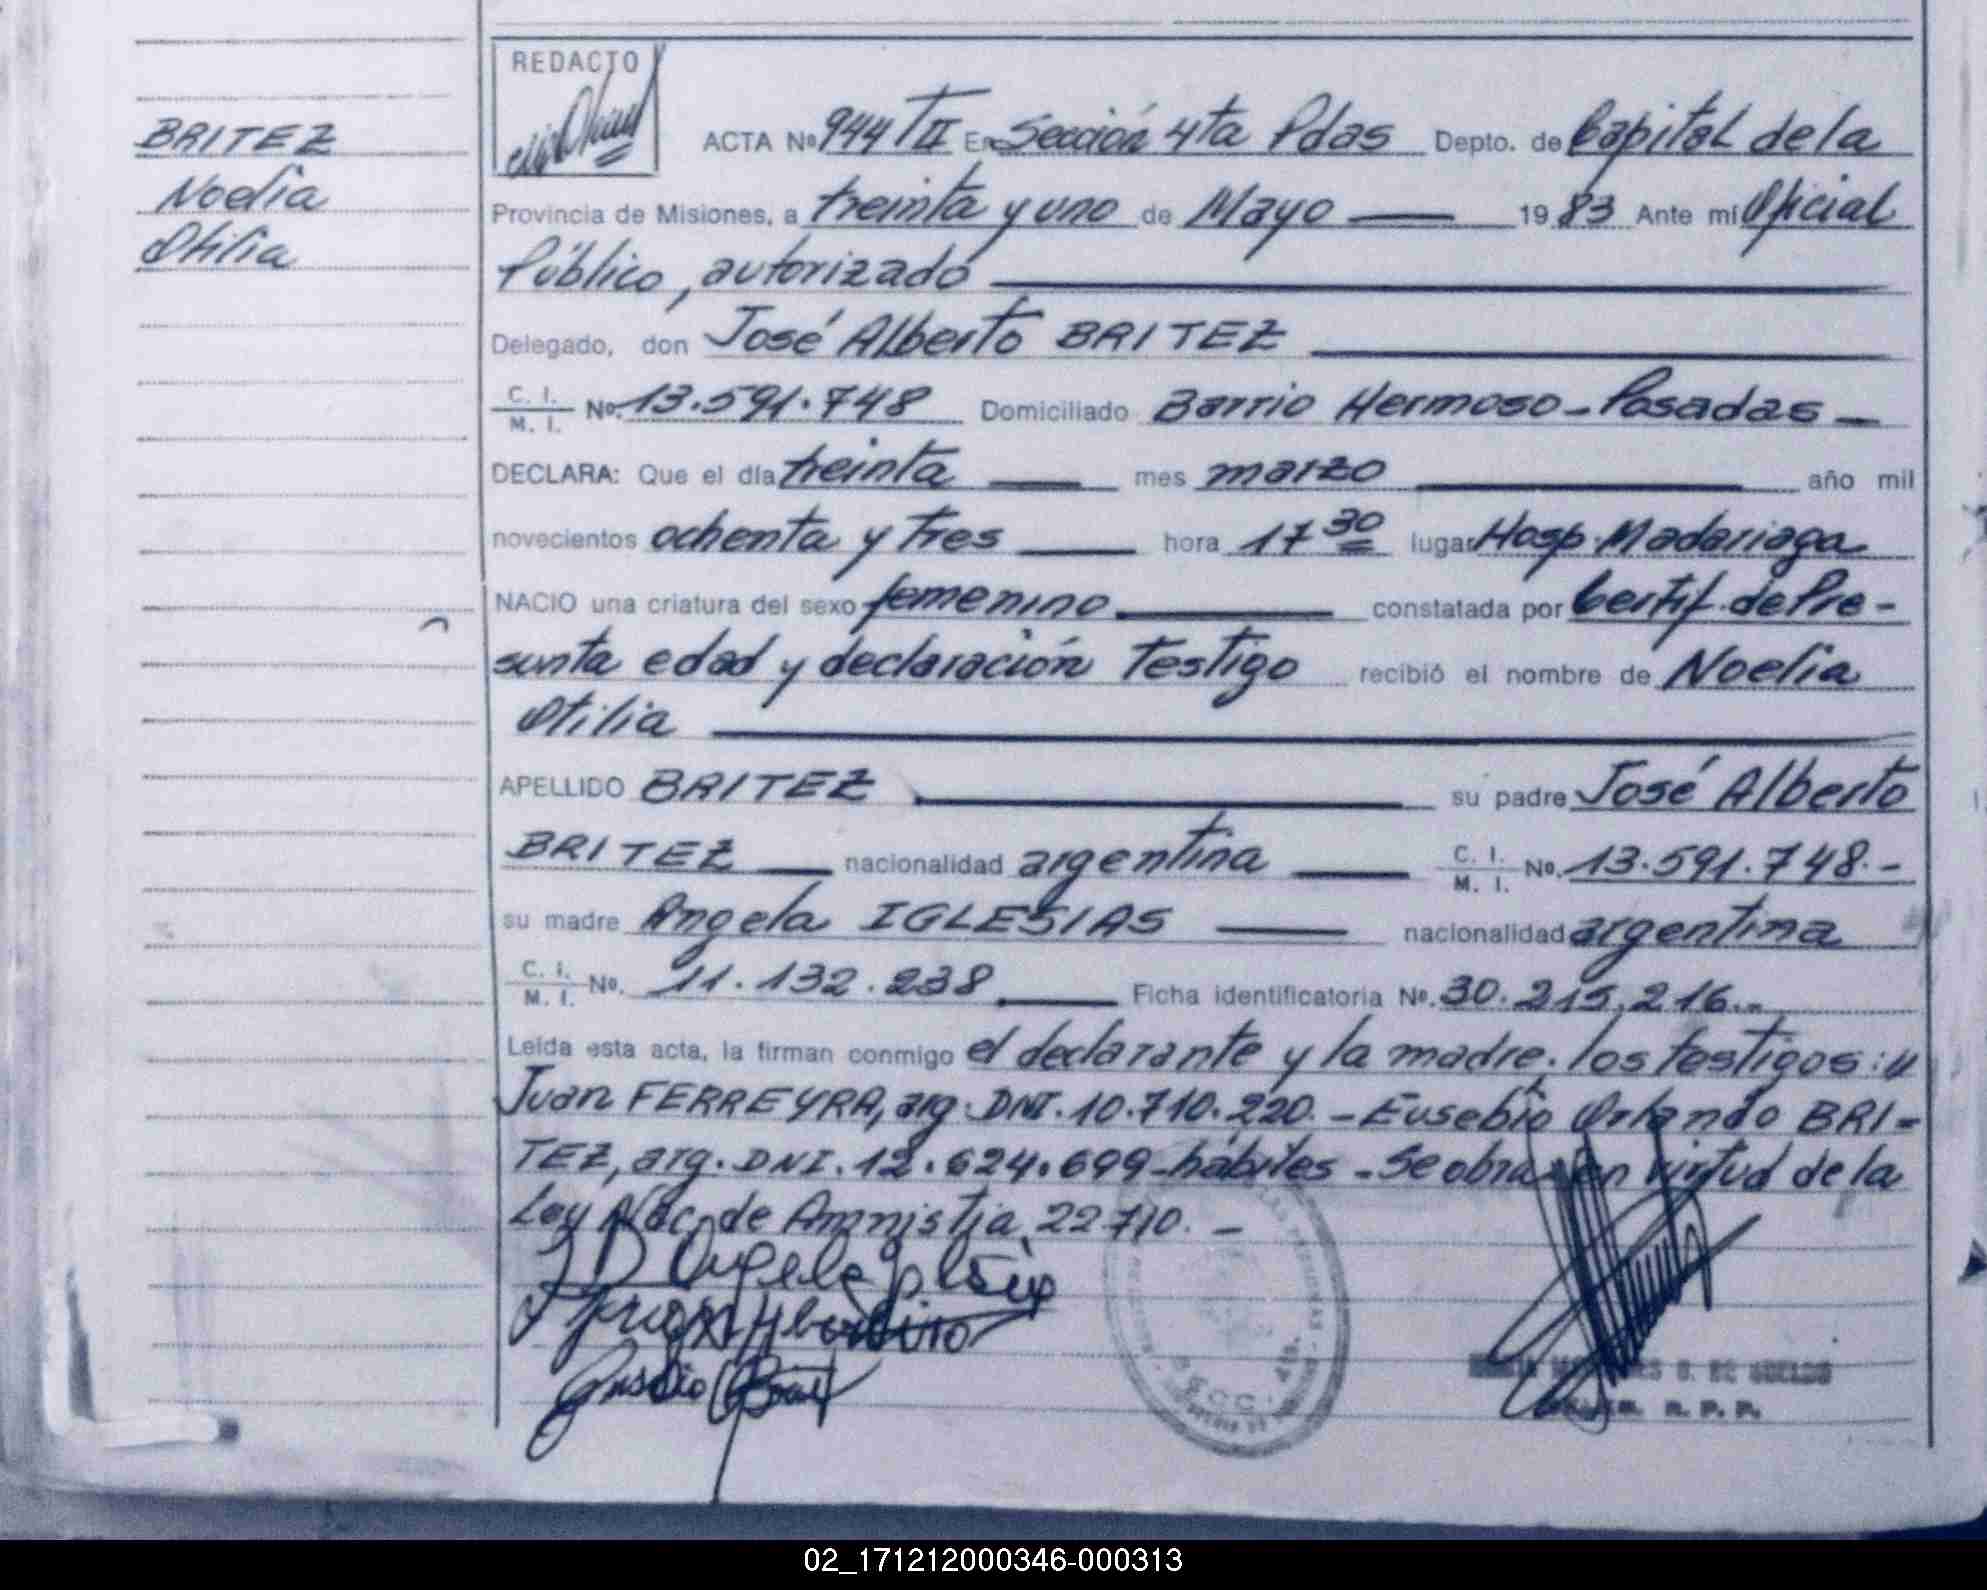 BRITEZ
Noelia
Otilia
REDACTO
ACTA Nº 944 TII En Sección 4ta Pdas Depto. de Capital de la
Provincia de Misiones, a treinta y uno de Mayo 19 83 Ante mí Oficial
Público, autorizado
Delegado, don José Alberto BRITEZ
C. I. M. I. Nº. 13.591.748 Domiciliado Barrio Hermoso - Posadas
DECLARA: Que el día treinta mes marzo año mil
novecientos ochenta y tres hora 17 30 lugar Hosp. Madariaga
NACIO una criatura del sexo femenino constatada por Certif. de Pre-
sunta edad y declaración Testigo recibió el nombre de Noelia
Otilia
APELLIDO BRITEZ su padre José Alberto
BRITEZ nacionalidad argentina C. I. M. I. Nº. 13.591.748.-
su madre Angela IGLESIAS nacionalidad argentina
C. I. M. I. Nº. 11.132.238 Ficha identificatoria Nº. 30.215.216.-
Leída esta acta, la firman conmigo el declarante y la madre. los testigos:
Juan FERREYRA, arg. DNI. 10.710.220.- Eusebio Orlando BRI-
TEZ, arg. DNI. 12.624.699 - hábiles - Se obra en virtud de la
Ley Nac. de Amnistia 22710.-
02_171212000346-000313